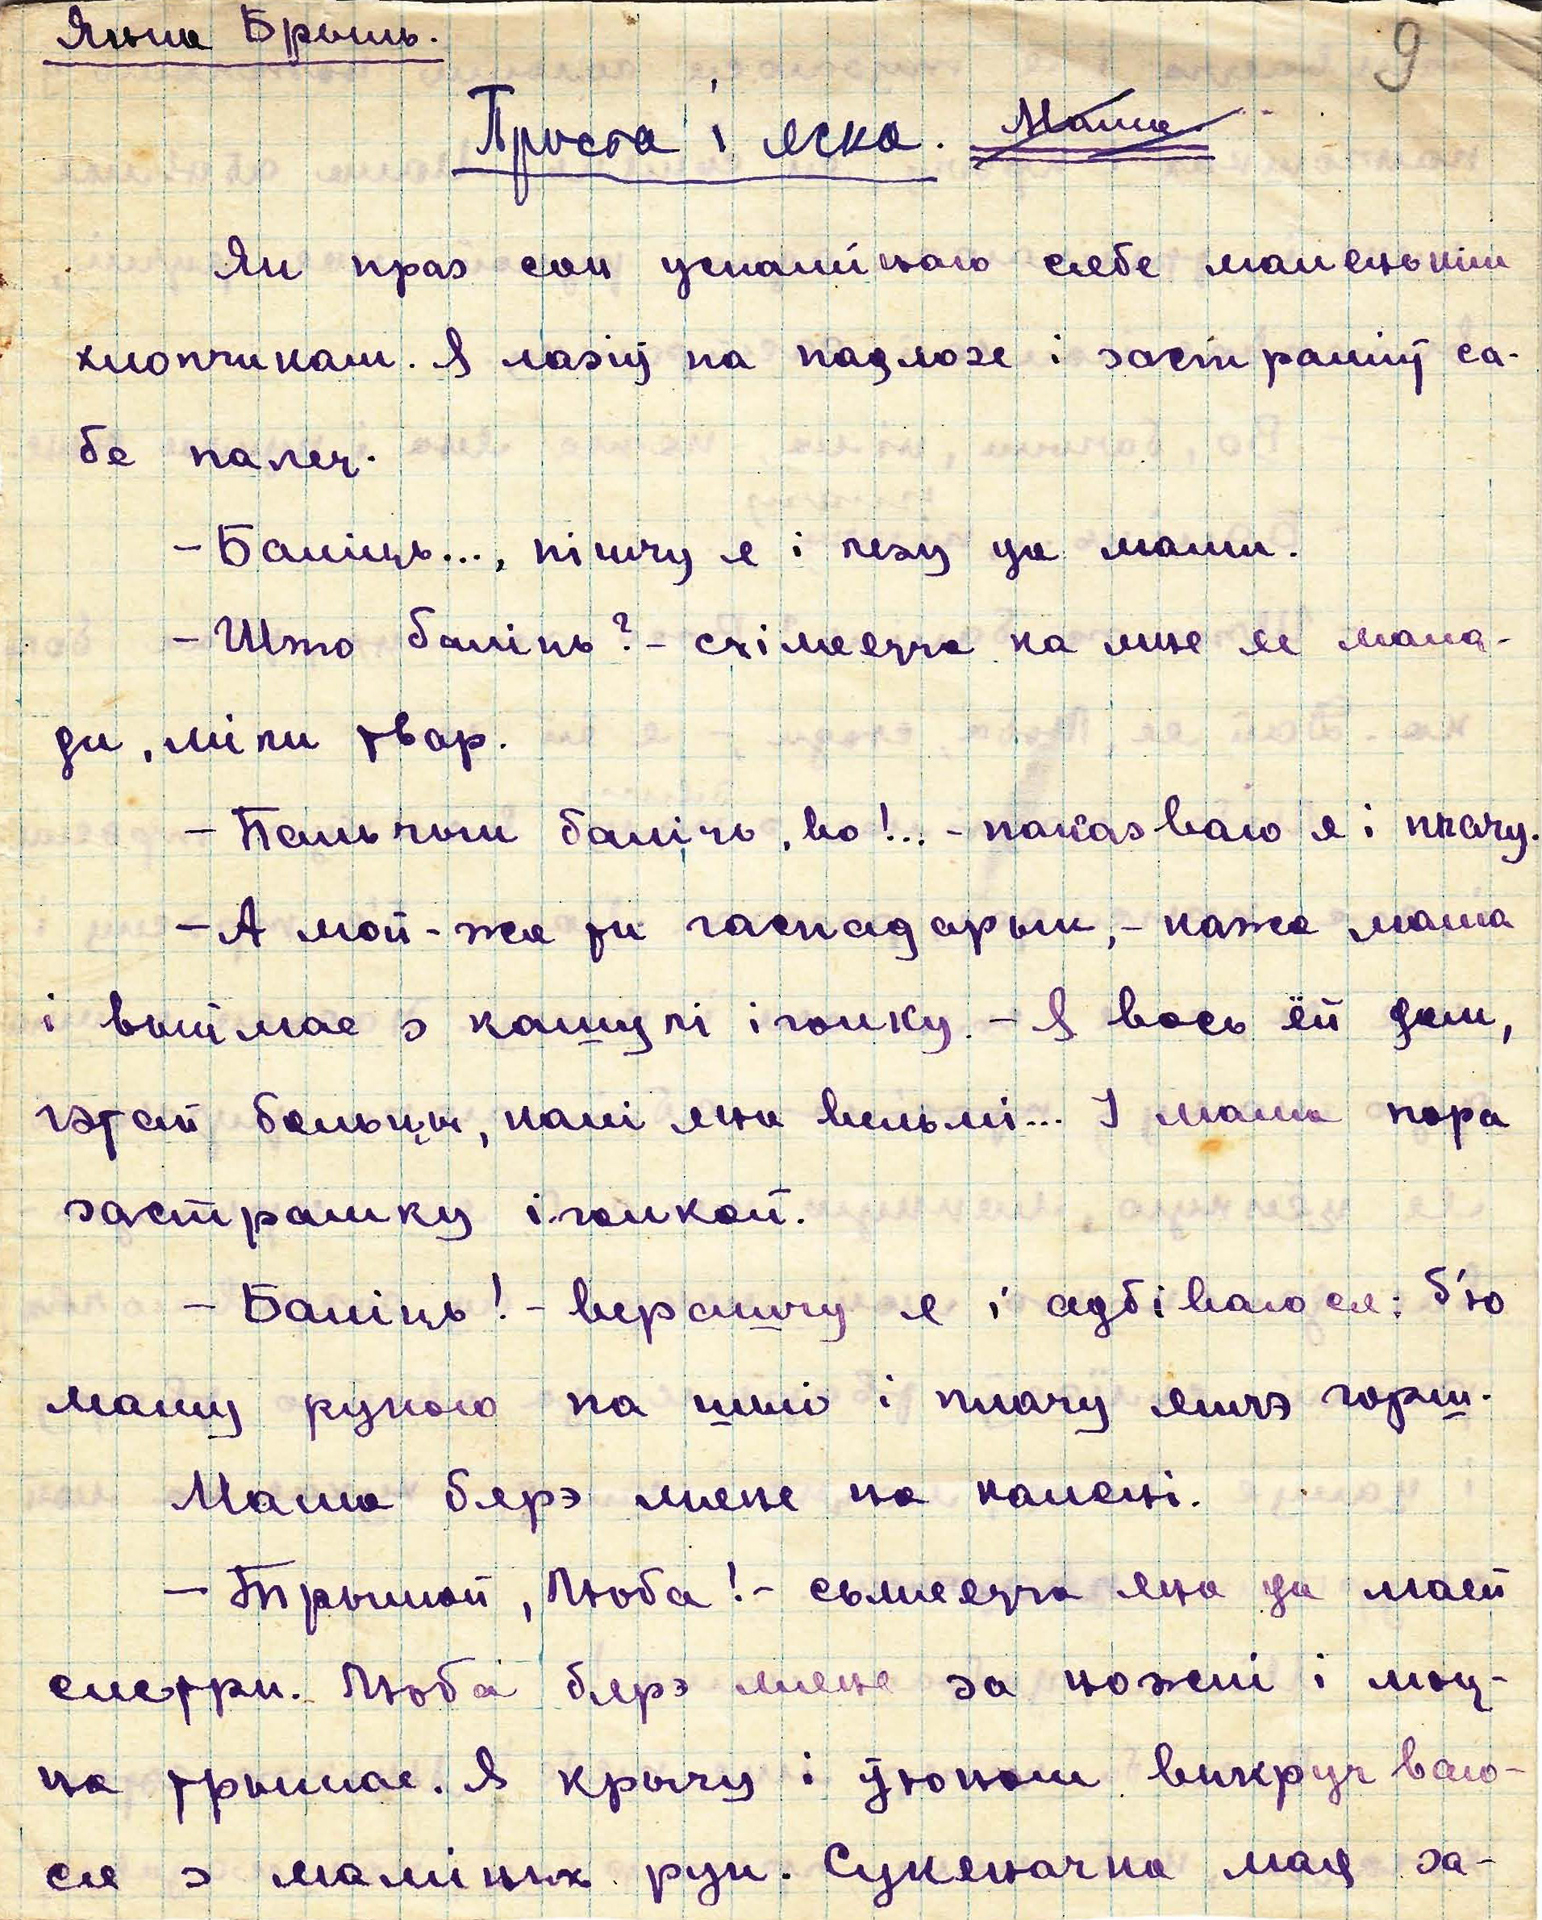 Янка Брыль.
9
Проста і ясна. Мама.
Як праз сон успамінаю сябе маленькім
хлопчыкам. Я лазіў па падлозе і застраміў са-
бе палец.
– Баліць..., пішчу я і лезу да мамы.
– Што баліць? – схіляецца на мне яе мала-
ды, мілы твар.
– Пальчык баліць, во!.. – паказваю я і плачу.
– А мой-жа ты гаспадарык, – кажа мама
і выймае з кашулі іголку. – Я вось ёй дам,
гэтай бальцы, калі яна вельмі... І мама пора
застрамку іголкой.
– Баліць! – верашчу я і адбіваюся: б'ю
маму рукою па шыі і плачу яшчэ горш.
Мама бярэ мяне на калені.
– Трымай, Люба! – сьмяецца яна да маей
сястры. Люба бярэ мяне за ножкі і моц-
на трымае. Я крычу і ўюном выкручваю-
ся з маміных рук. Сукеначка мая за-